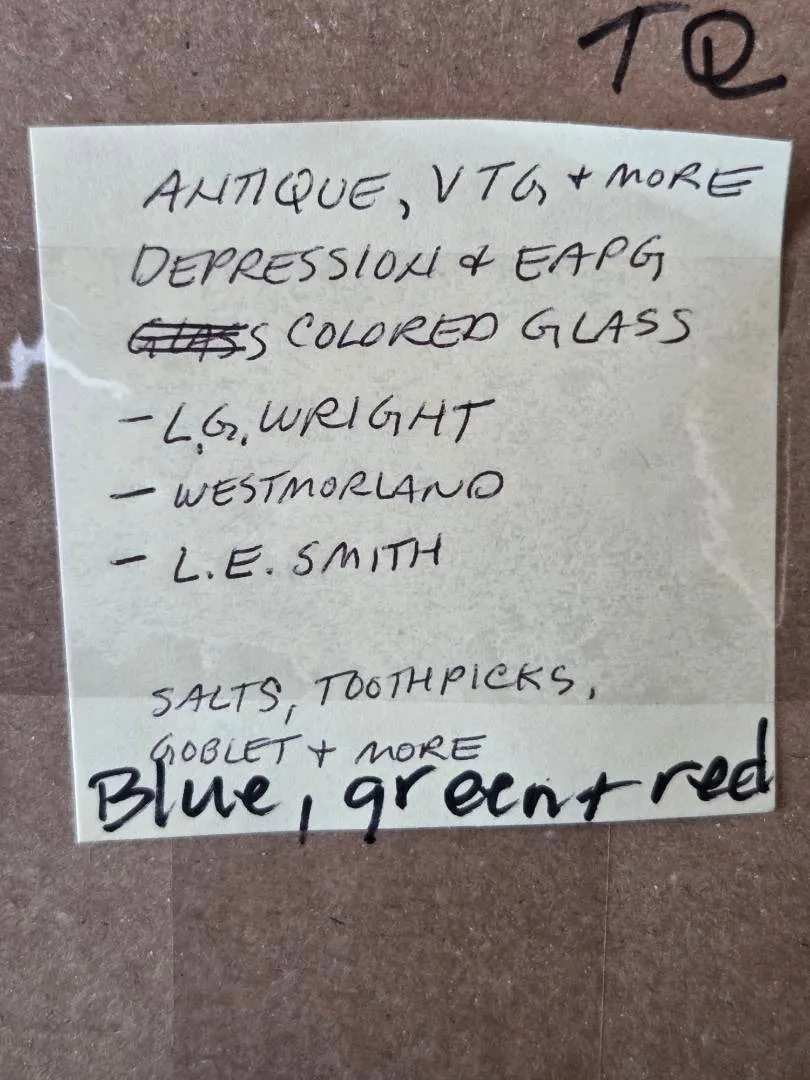 TQ
ANTIQUE, VTG + MORE
DEPRESSION & EAPG
GLASS COLORED GLASS
- L.G. WRIGHT
- WESTMORLAND
- L.E. SMITH
SALTS, TOOTHPICKS,
GOBLET + MORE
Blue, green + red